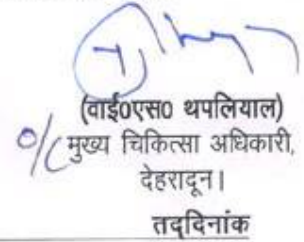 (वाई0एस0 थपलियाल)
मुख्य चिकित्सा अधिकारी,
देहरादून।
तद्दिनांक